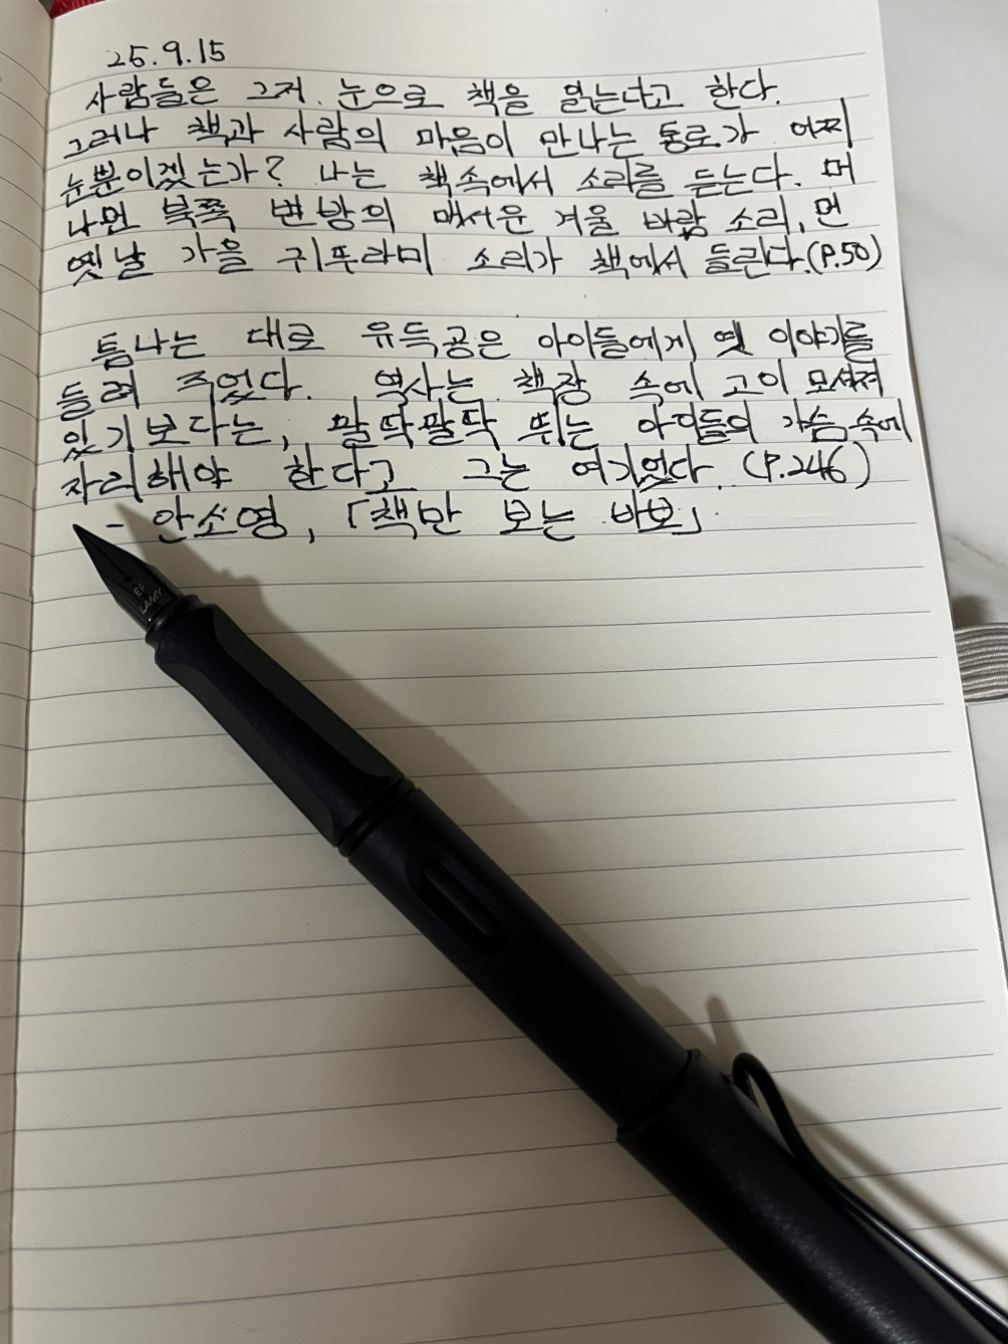 25.9.15
사람들은 그저 눈으로 책을 읽는다고 한다.
그러나 책과 사람의 마음이 만나는 통로가 어찌
눈뿐이겠는가? 나는 책속에서 소리를 듣는다. 머
나먼 북쪽 변방의 매서운 겨울 바람 소리, 먼
옛날 가을 귀뚜라미 소리가 책에서 들린다.(P.50)
틈나는 대로 유득공은 아이들에게 옛 이야기를
들려 주었다. 역사는 책장 속에 고이 모셔져
있기보다는, 팔딱팔딱 뛰는 아이들의 가슴 속에
자리해야 한다고 그는 여기었다. (P.246)
- 안소영, 「책만 보는 바보」
EF
LAMY